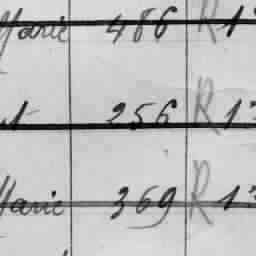 Marie 486 R 1
256 R 1
Marie 369 R 1